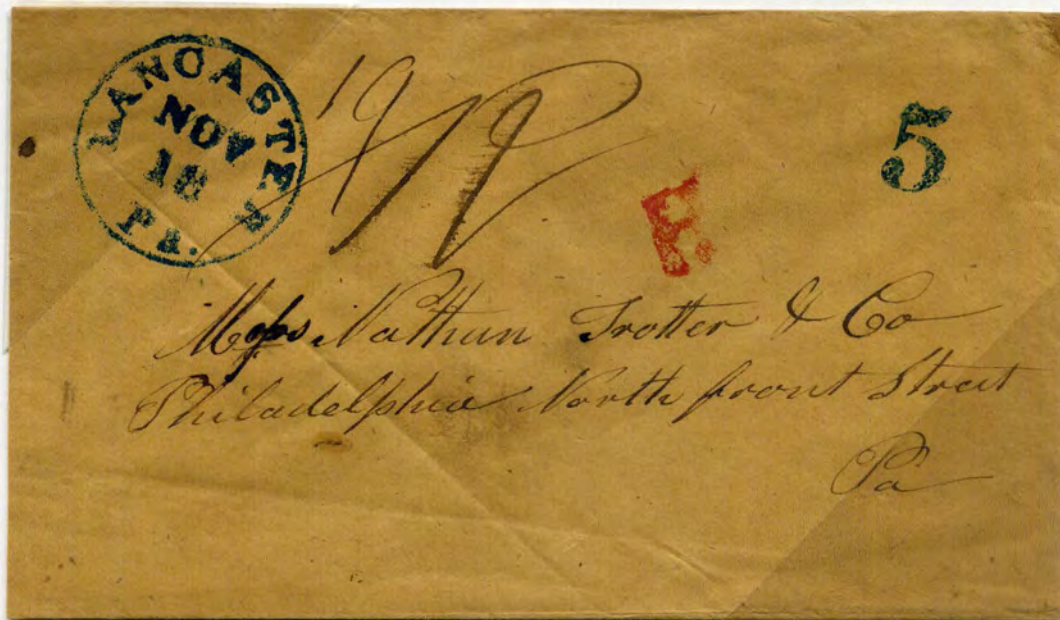 LANCASTER
NOV
18
Pa.
5
Mess Nathan Trotter & Co
Philadelphia North front Street
Pa